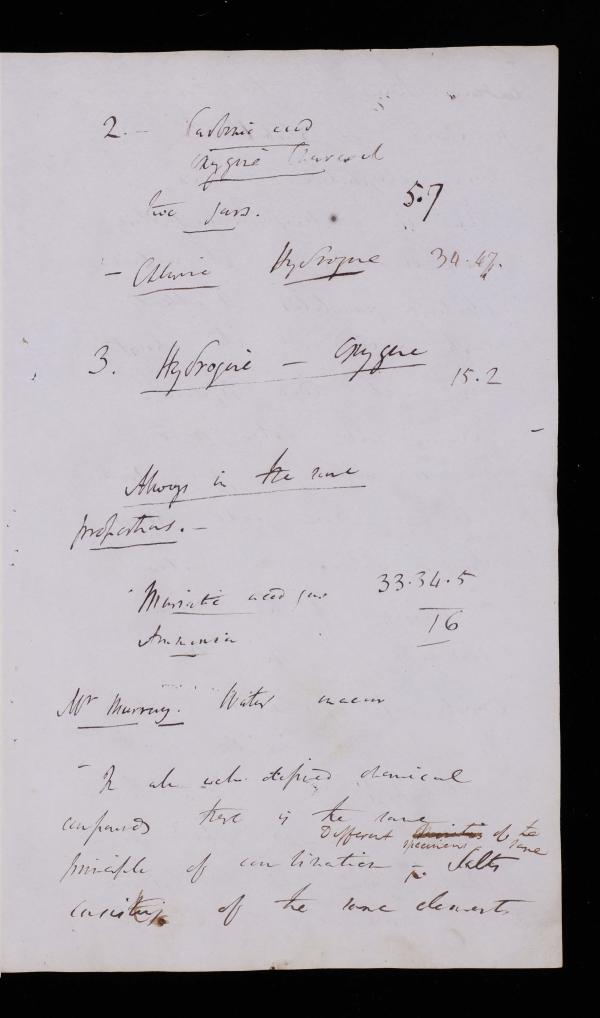 2. — Carbonic acid
oxygene Charcoal
two gases. 5.7
— Chlorine Hydrogene 34.47.
3. Hydrogene — oxygene
15.2
Always in the same
proportions. —
Muriatic acid gas 33.34.5
Ammonia 16
Mr Murray. Water
— In all well defined chemical
compounds there is the same
Different of the
specimens same
principle of combination — Salts
consisting of the same elements